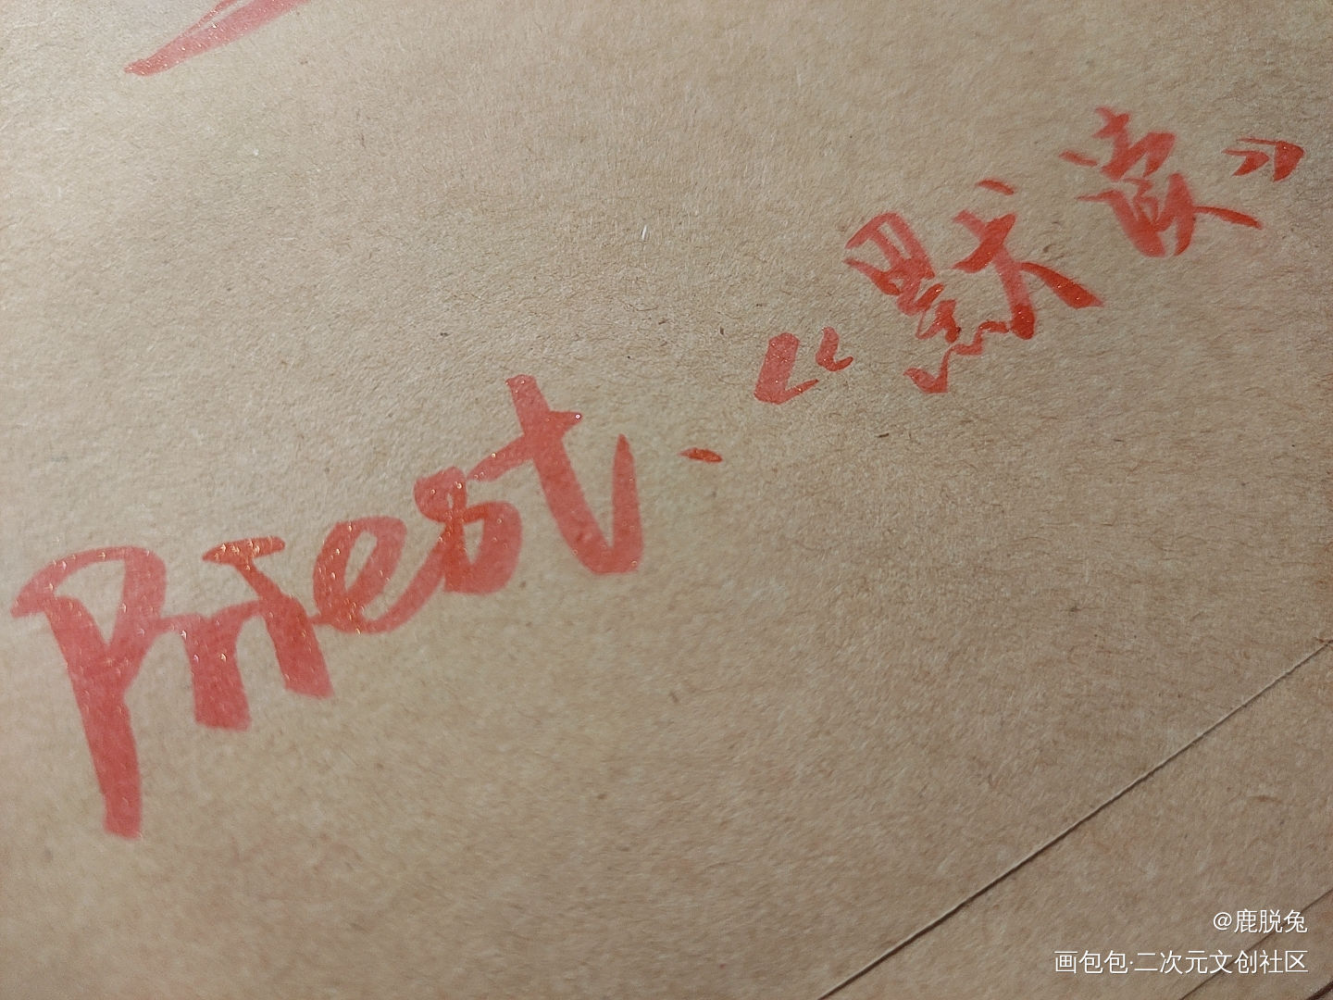 Priest.《默读》
@鹿脱兔
画包包·二次元文创社区